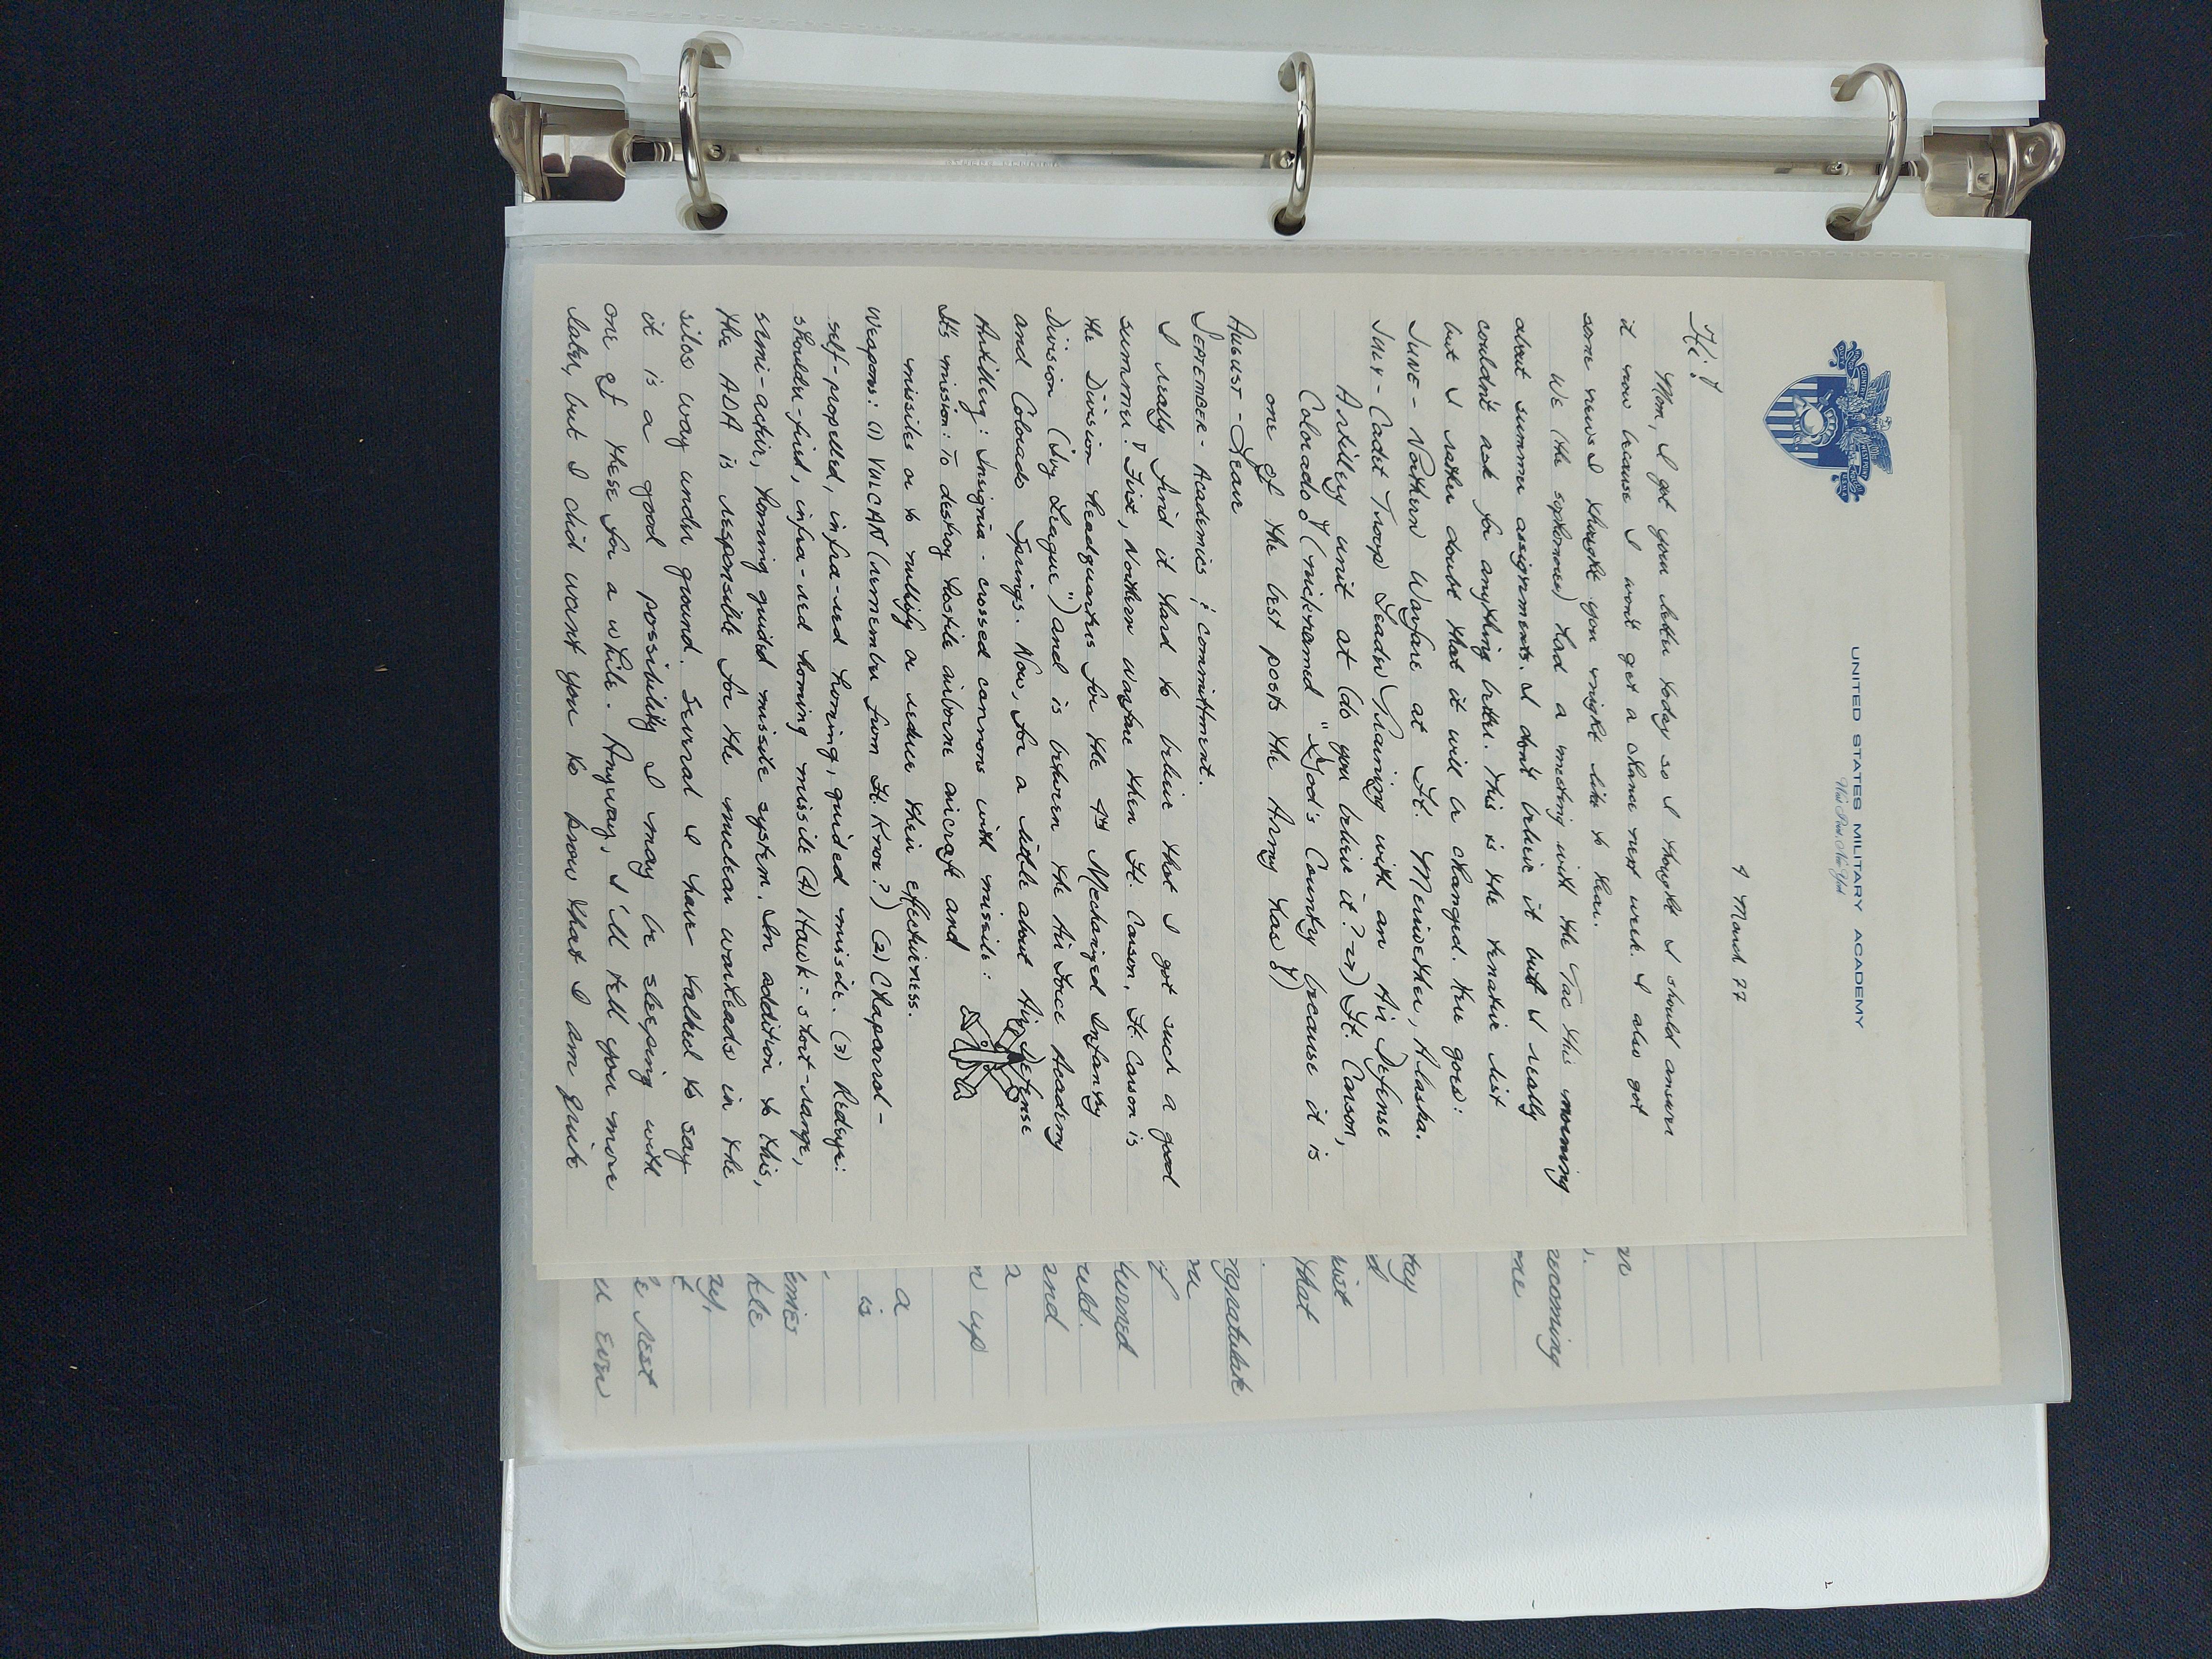 UNITED STATES MILITARY ACADEMY
West Point, New York
9 March 77
Hi!
Mom, I got your letter today so I thought I should answer
it now because I won't get a chance next week. I also got
some news I thought you might like to hear.
We (the sophomores) had a meeting with the Tac this morning
about summer assignments. I don't believe it but I really
couldn't ask for anything better. This is the tenative list
but I rather doubt that it will be changed. Here goes:
JUNE - Northern Warfare at Ft. , Alaska.
JULY - Cadet Troop Leader Training with an Air Defense
Artillery unit at (do you believe it?) Ft. Carson,
Colorado! (nicknamed "God's Country because it is
one of the best posts the Army has!)
AUGUST - Leave
SEPTEMBER - Academics & committment.
I really find it hard to believe that I got such a good
summer! First, Northern warfare then Ft. Carson. Ft. Carson is
the Division headquarters for the 4th Mechanized Infantry
Division (Ivy League") and is between the Air Force Academy
and Colorado Springs. Now, for a little about Air Defense
Artillery: Insignia - crossed cannons with missile:
It's mission: To destroy hostile airborne aircraft and
missiles or to nullify or reduce their effectiveness.
Weapons: (1) VULCAN (remember from Ft. Knox?) (2) Chaparral -
self-propelled, infra-red homing, guided missile. (3) Redeye:
shoulder-fired, infra-red homing missile (4) Hawk: short-range,
semi-active, homing guided missile system. In addition to this,
the ADA is responsible for the nuclear warheads in the
silos way under ground. Several I have talked to say
it is a good possibility I may be sleeping with
one of these for a while. Anyway, I'll tell you more
later, but I did want you to know that I am quite
ecoming
me
tay
that
ngratulate
of
turned
uld.
and
a
n up
a
is
kle
e rest
u even